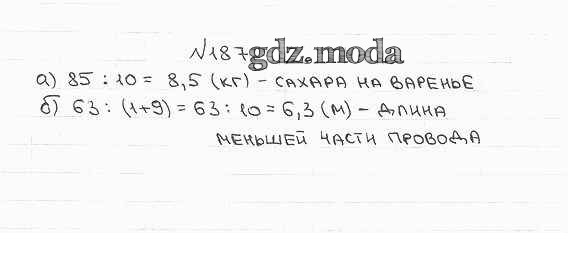 №187 gdz.moda
а) 85 : 10 = 8,5 (кг) – сахара на варенье
б) 63 : (1+9) = 63 : 10 = 6,3 (м) – длина
меньшей части провода